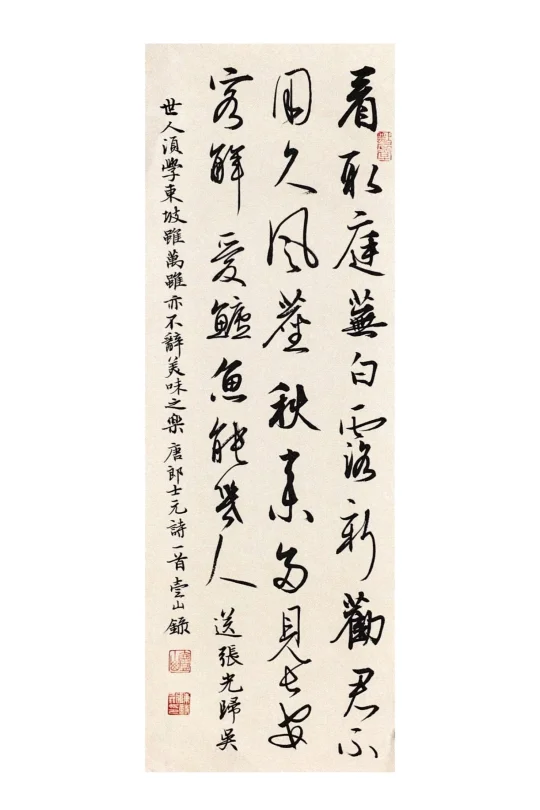 看取庭蕪白露新勸君不
用久風塵秋來多見長安
客解愛鱸魚能幾人 送張光歸吳
世人須學東坡雖萬雖亦不辭美味之樂 唐郎士元詩一首 壹山錄